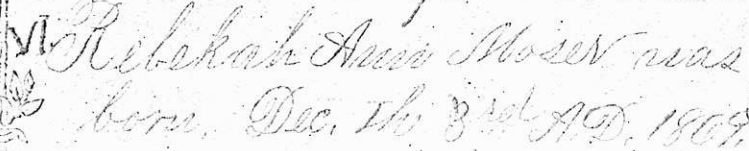 VI. Rebekah Ann Moser was
born, Dec. th 3rd A.D. 1869.